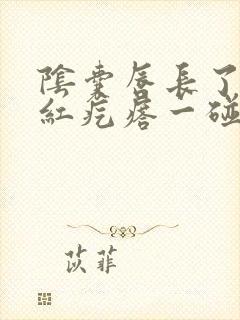 陰囊唇長了
紅疙瘩一碰
苡菲